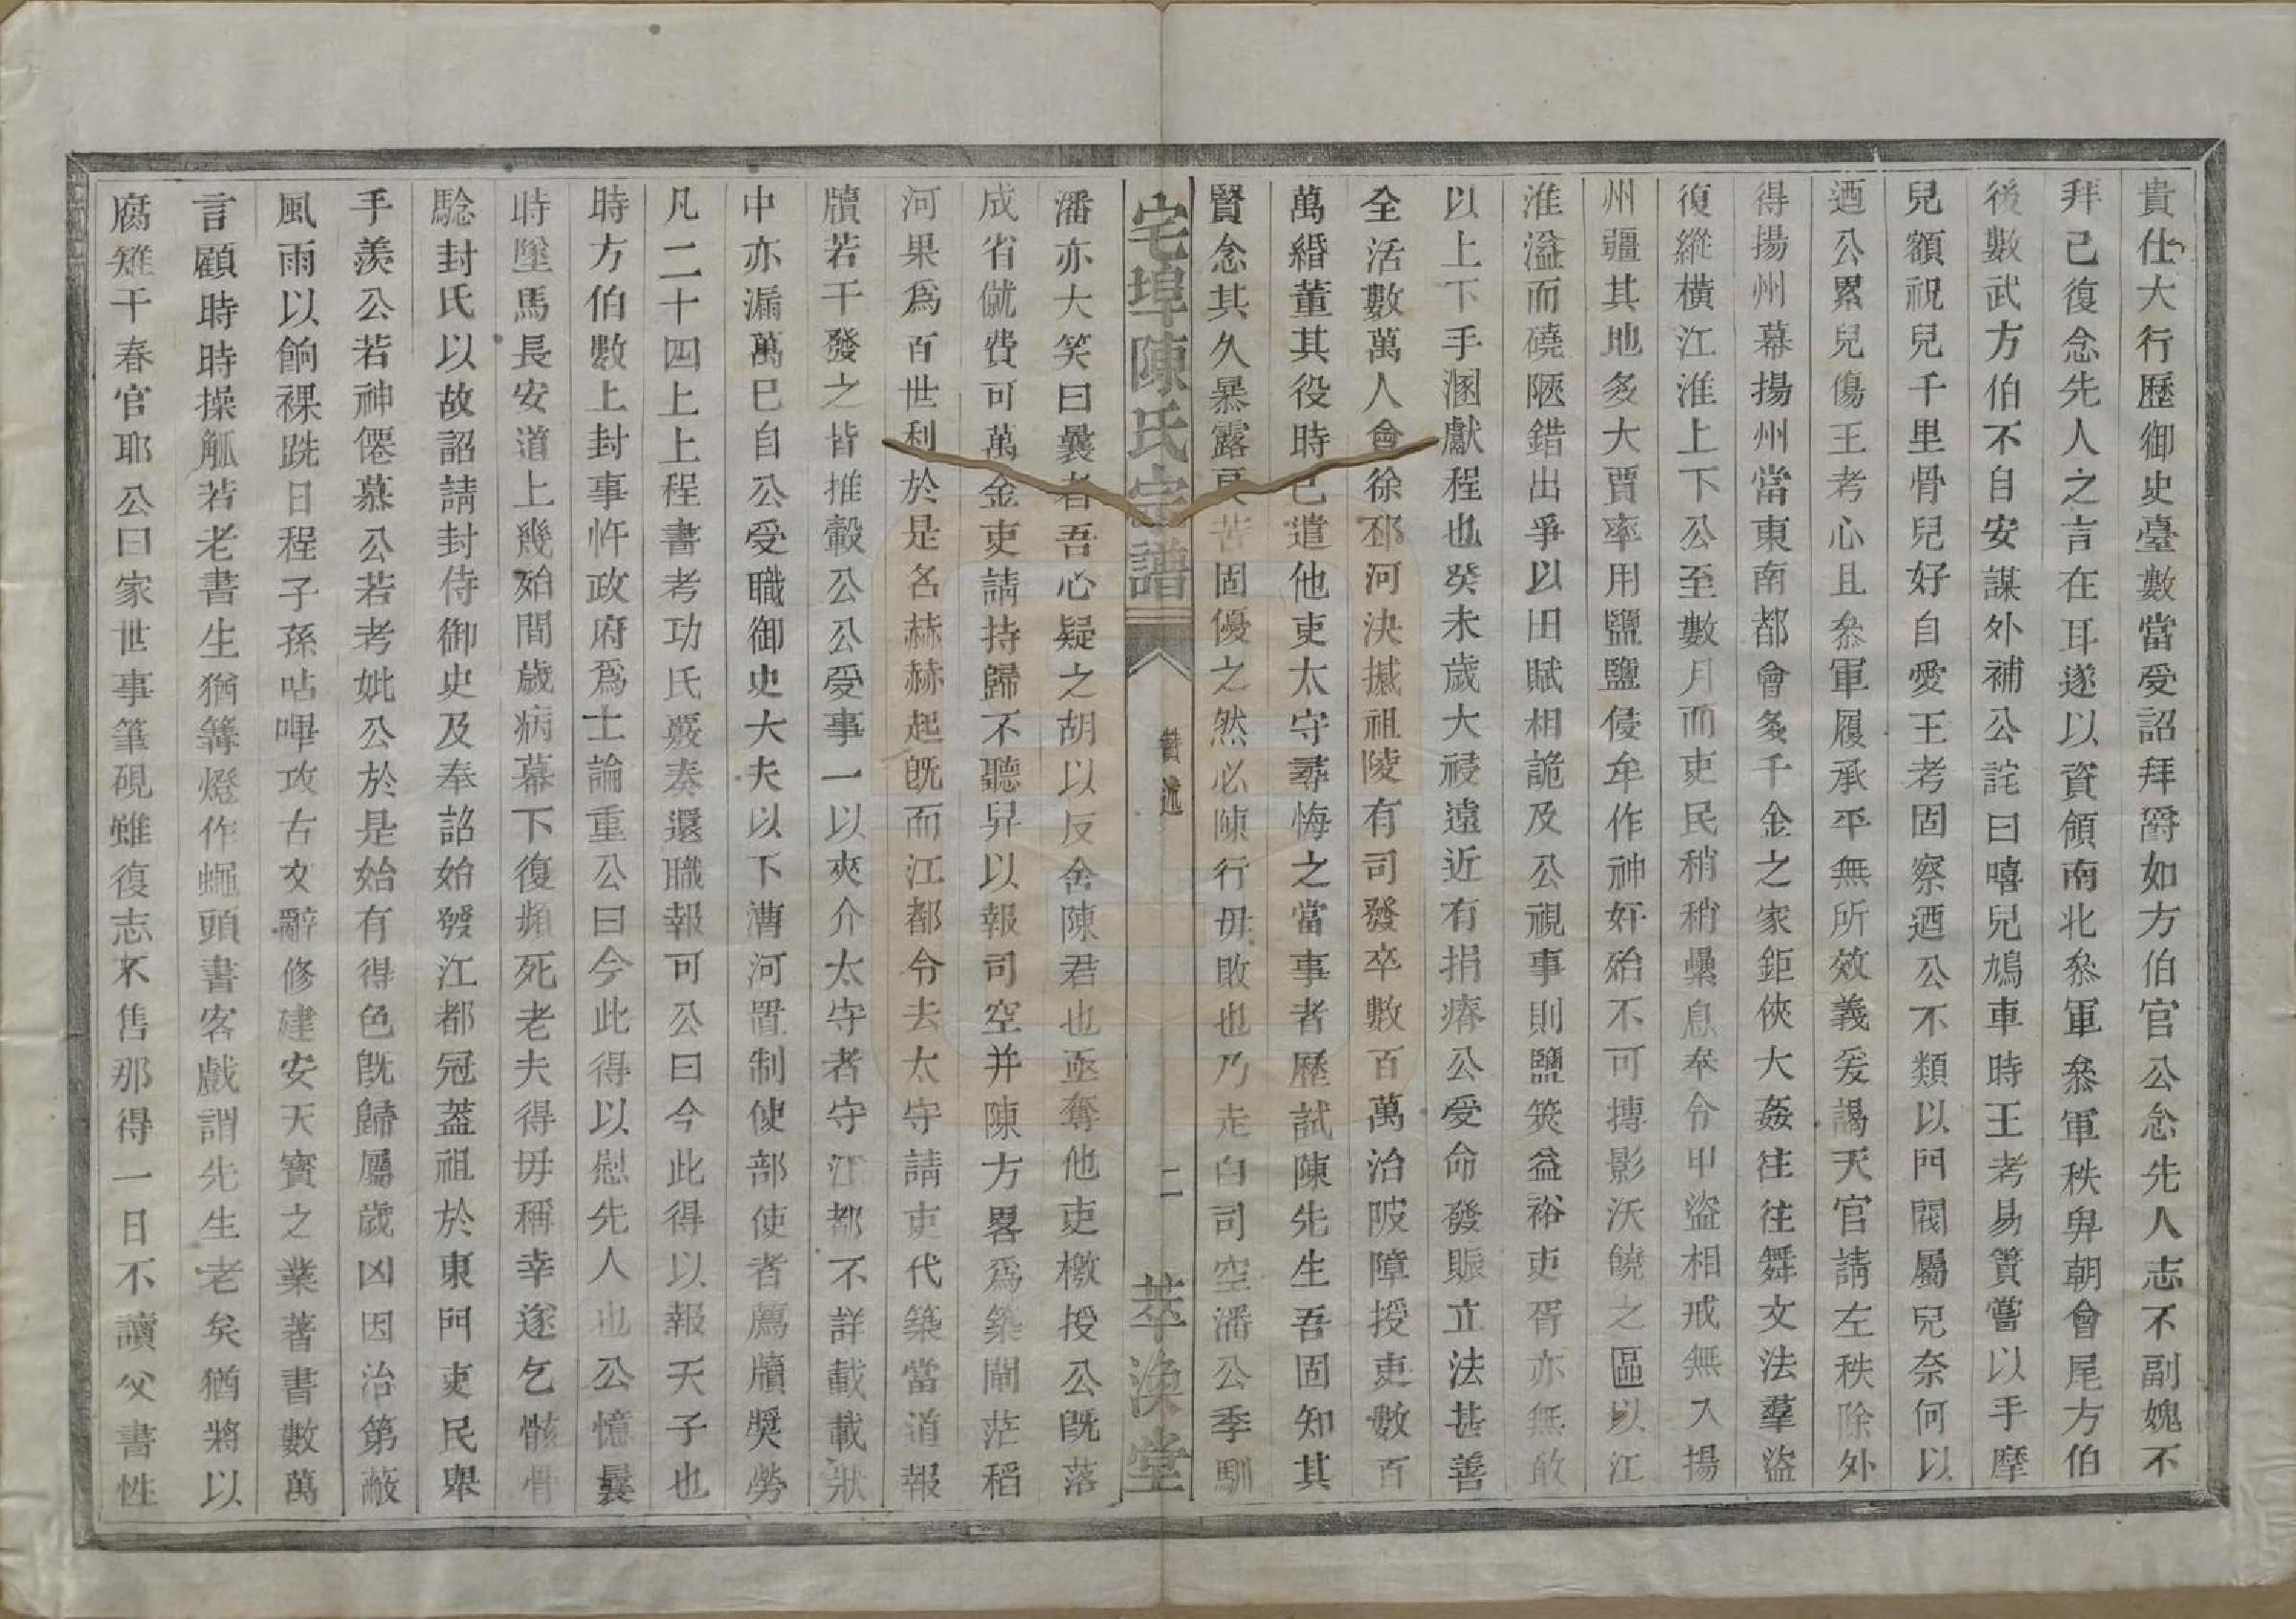 貴仕大行歷御史臺數當受詔拜爵如方伯官公忩先人志不副媿不
拜已復念先人之言在耳遂以資領南北叅軍叅軍秩卑朝會尾方伯
後數武方伯不自安謀外補公詫曰嘻兒鳩車時王考易簀嘗以手摩
兒額祝兒兒千里骨兒好自愛王考固察迺公不類以門閥屬兒奈何以
迺公累兒傷王考心且叅軍履承平無所效義爰謁天官請左秩除外
得揚州幕揚州當東南都會多千金之家鉅俠大姦往往舞文法羣盜
復縱橫江淮上下公至數月而吏民稍稍櫜息奉令甲盜相戒無入揚
州疆其地多大賈率用鹽鹽侵牟作神奸殆不可摶影沃饒之區以江
淮溢而磽陿錯出爭以田賦相詭及公視事則鹽筴益裕吏胥亦無敢
以上下手溷獻程也癸未歲大祲遠近有捐瘠公受命發賑立法甚善
全活數萬人會徐邳河決撼祖陵有司發卒數百萬治陂障授吏數百
萬緡董其役時已遣他吏太守尋悔之當事者歷試陳先生吾固知其
賢念其久暴露良苦固優之然必陳行毋敗也乃走白司空潘公季馴
宅埠陳氏宗譜
替述
二
萃渙堂
潘亦大笑曰曩者吾心疑之胡以反舍陳君也亟奪他吏檄授公旣落
成省僦費可萬金吏請持歸不聽昇以報司空并陳方畧爲築閘茫稻
河果爲百世利於是名赫赫起旣而江都令去太守請吏代築當道報
牘若干發之皆推轂公公受事一以夾介太守者守江都不詳載載狀
中亦漏萬巳自公受職御史大夫以下漕河置制使部使者薦牘獎勞
凡二十四上上程書考功氏覈奏還職報可公曰今此得以報天子也
時方伯數上封事忤政府爲士論重公曰今此得以慰先人也公憶曩
時墜馬長安道上幾殆間歲病幕下復頻死老夫得毋稱幸遂乞骸骨
騐封氏以故詔請封侍御史及奉詔始發江都冠蓋祖於東門吏民舉
手羨公若神僊慕公若考妣公於是始有得色旣歸屬歲凶因治第蔽
風雨以餉裸跣日程子孫呫嗶攻古文辭修建安天寶之業著書數萬
言顧時時操觚若老書生猶篝燈作蠅頭書客戲謂先生老矣猶將以
腐雉干春官耶公曰家世事筆硯雖復志不售那得一日不讀父書性